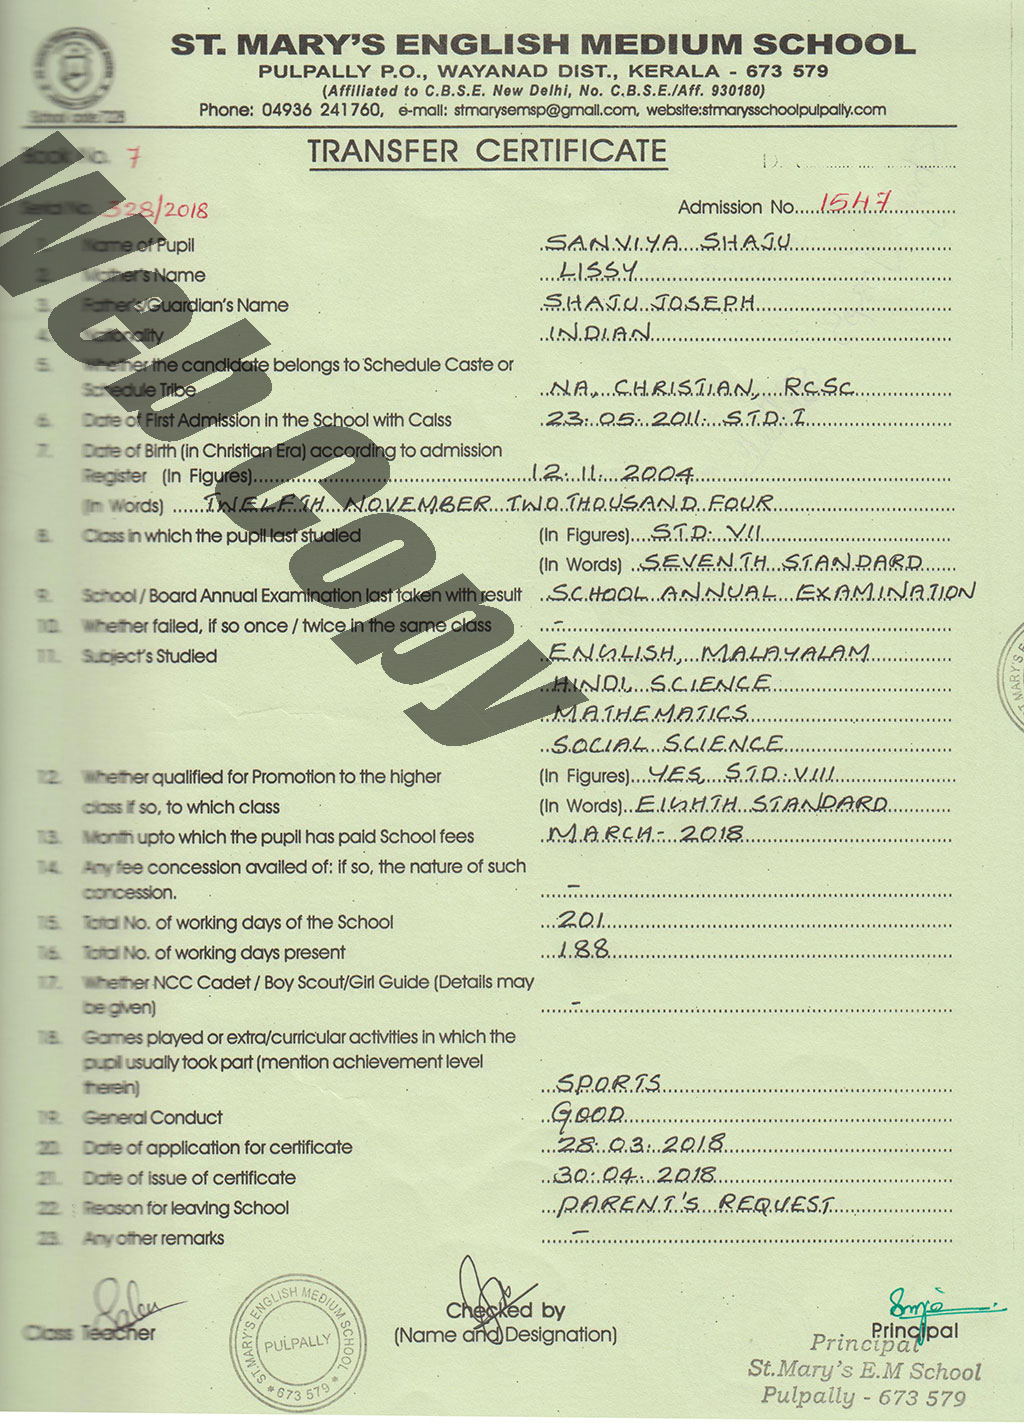 ST. MARY'S ENGLISH MEDIUM SCHOOL
PULPALLY P.O., WAYANAD DIST., KERALA - 673 579
(Affiliated to C.B.S.E. New Delhi, No. C.B.S.E./Aff. 930180)
Phone: 04936 241760, e-mail: stmarysemsp@gmail.com, website:stmarysschoolpulpally.com
Book No. 7
TRANSFER CERTIFICATE
Serial No. 328/2018
Admission No. 1547
1. Name of Pupil SANVIYA SHAJU
2. Mother's Name LISSY
3. Father's/Guardian's Name SHAJU JOSEPH
4. Nationality INDIAN
5. Whether the candidate belongs to Schedule Caste or
Schedule Tribe NA, CHRISTIAN, RCSC
6. Date of First Admission in the School with Calss 23.05.2011. STD.I
7. Date of Birth (in Christian Era) according to admission
Register (In Figures) 12.11.2004
(In Words) TWELFTH NOVEMBER TWO THOUSAND FOUR
8. Class in which the pupil last studied (In Figures) STD. VII
(In Words) SEVENTH STANDARD
9. School / Board Annual Examination last taken with result SCHOOL ANNUAL EXAMINATION
10. Whether failed, if so once / twice in the same class -
11. Subject's Studied ENGLISH, MALAYALAM
HINDI, SCIENCE
MATHEMATICS
SOCIAL SCIENCE
12. Whether qualified for Promotion to the higher (In Figures) YES, STD.VIII
class if so, to which class (In Words) EIGHTH STANDARD
13. Month upto which the pupil has paid School fees MARCH- 2018
14. Any fee concession availed of: if so, the nature of such
concession. -
15. Total No. of working days of the School 201
16. Total No. of working days present 188
17. Whether NCC Cadet / Boy Scout/Girl Guide (Details may
be given) -
18. Games played or extra/curricular activities in which the
pupil usually took part (mention achievement level
therein) SPORTS
19. General Conduct GOOD
20. Date of application for certificate 28.03.2018
21. Date of issue of certificate 30.04.2018
22. Reason for leaving School PARENT'S REQUEST
23. Any other remarks -
Web Copy
Class Teacher
ST.MARY'S ENGLISH MEDIUM SCHOOL
PULPALLY
* 673 579 *
Checked by
(Name and Designation)
Principal
Principal
St.Mary's E.M School
Pulpally - 673 579